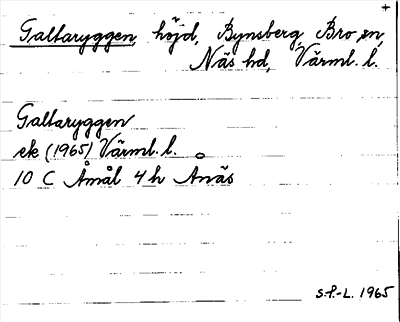 +
Galtaryggen, höjd, Bynsberg, Bro sn,
Näs hd, Värml. l.
Galtaryggen
ek (1965) Värml. l.
10 C Åmål 4 h Anäs
S.P.-L. 1965